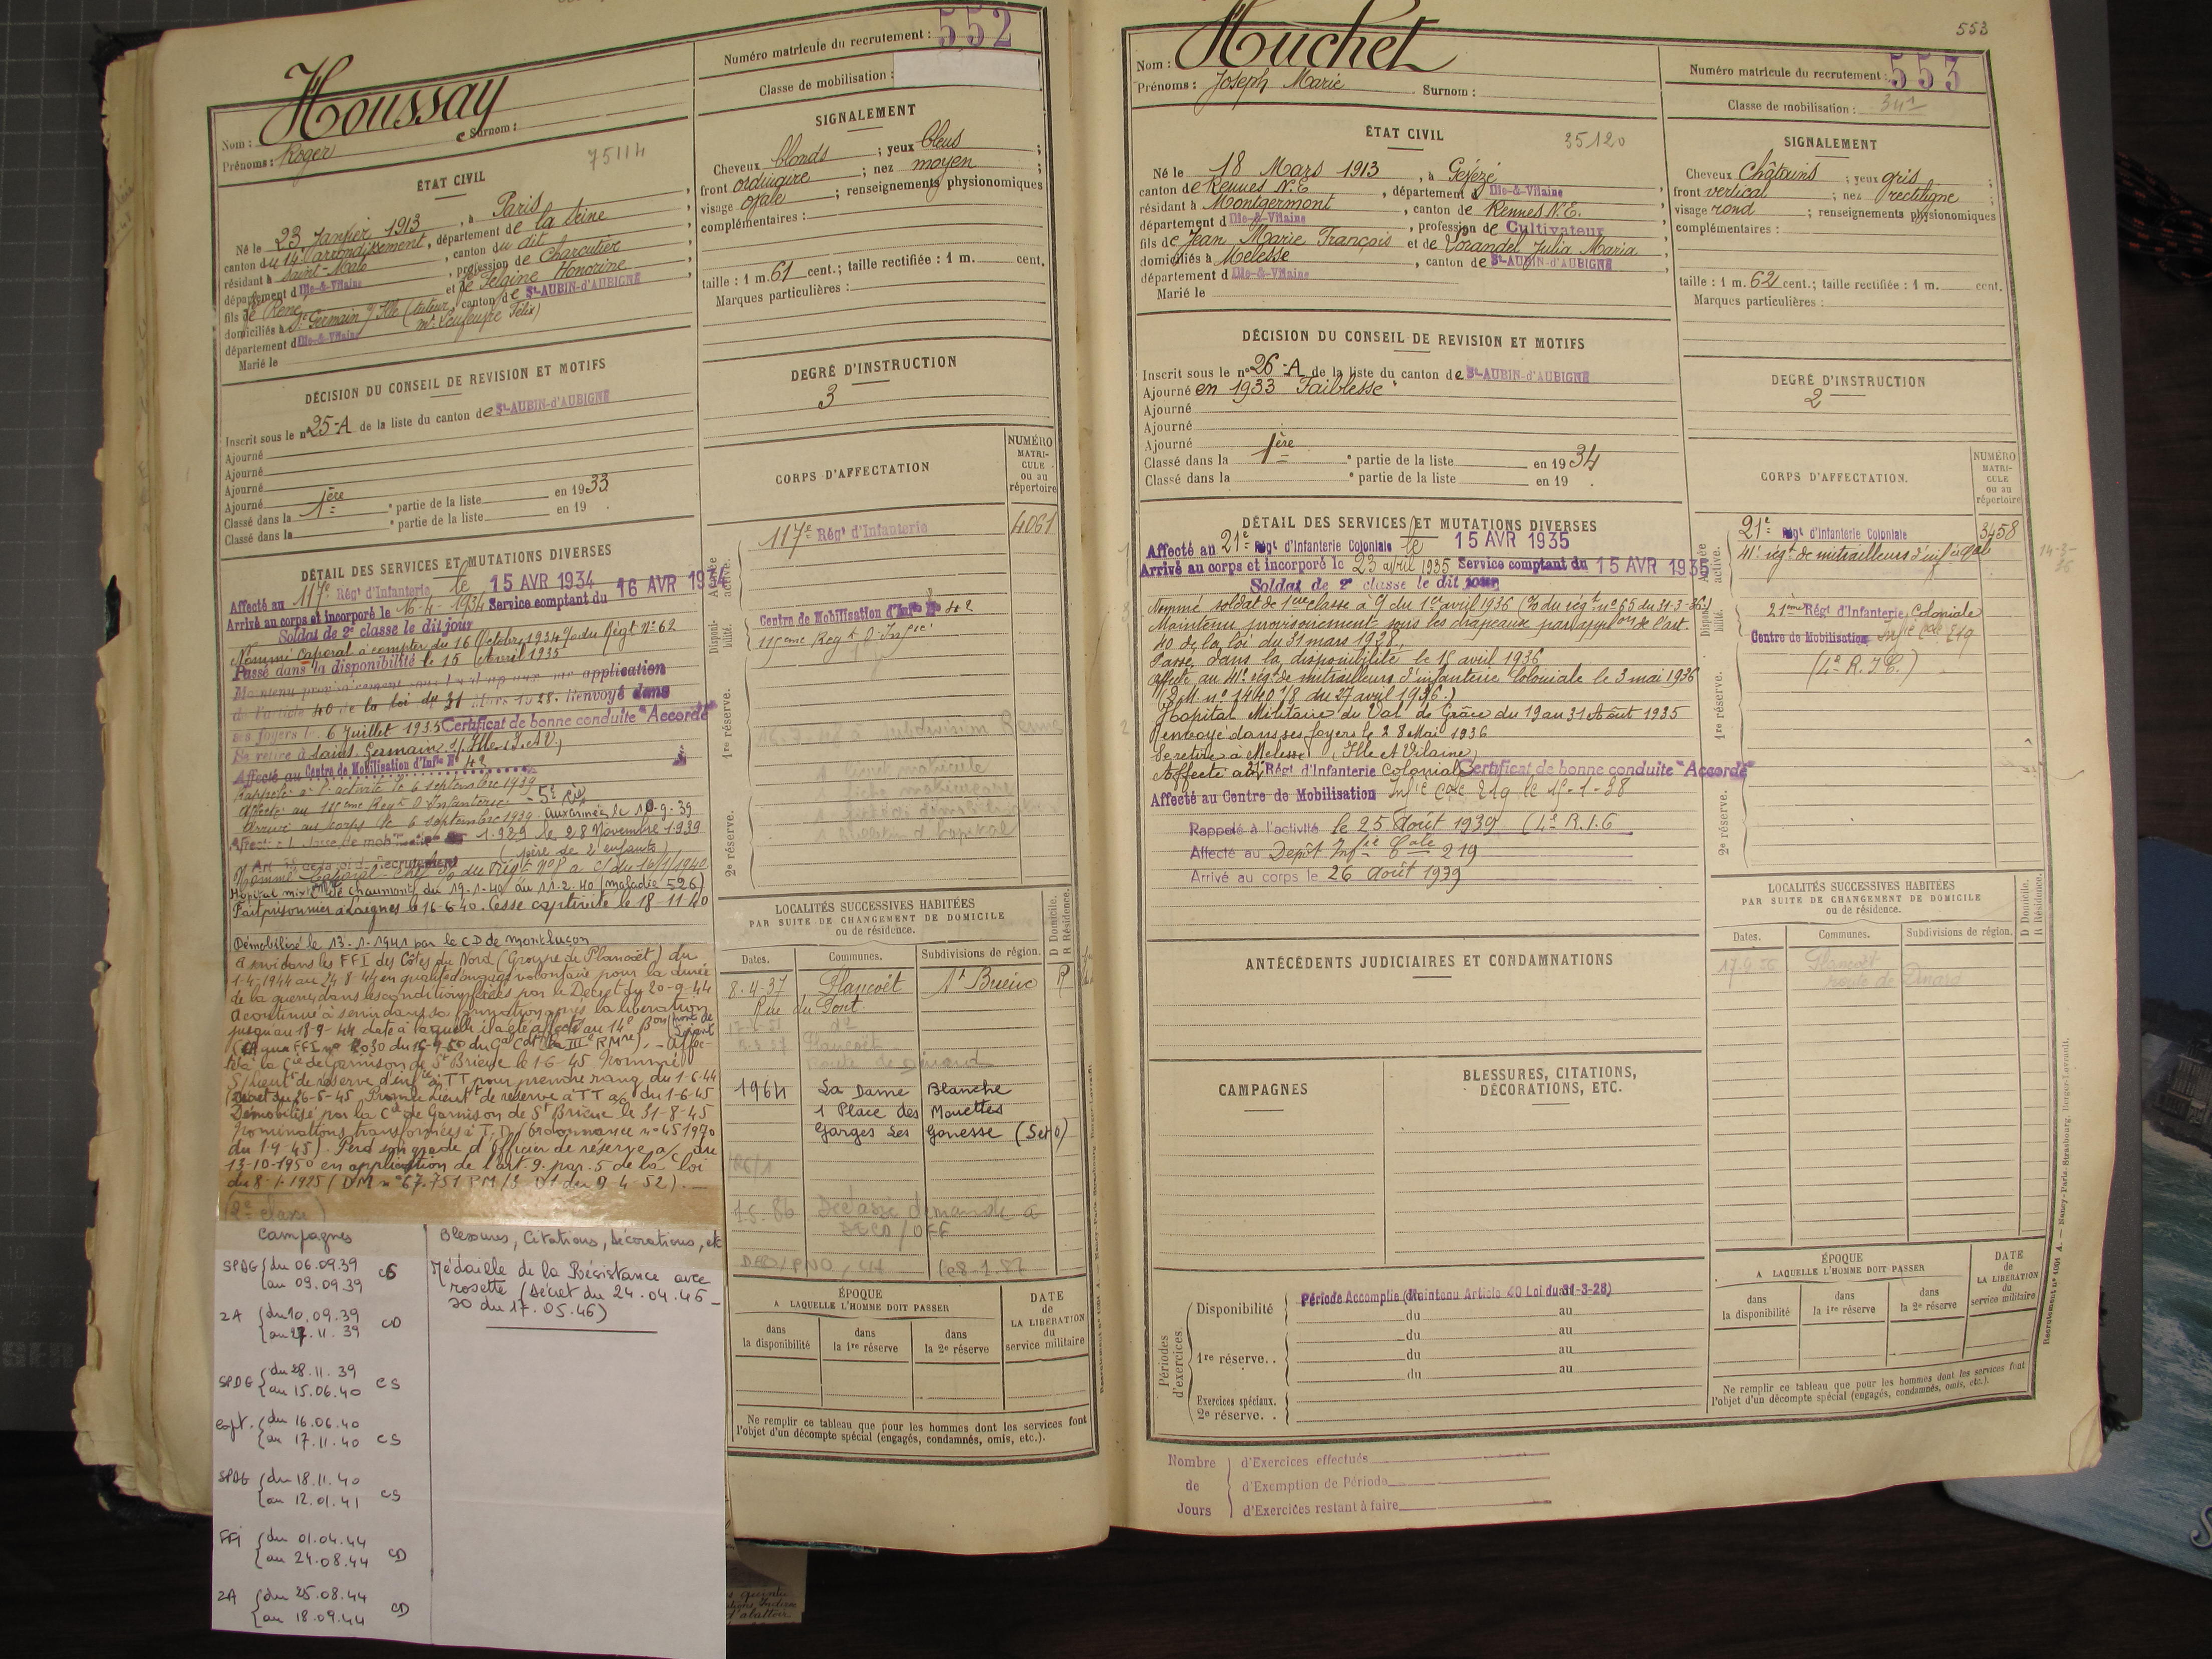 Numéro matricule du recrutement : 552
Classe de mobilisation :
Nom : Houssay
Prénoms : Roger Surnom :
75114
ÉTAT CIVIL
Né le 23 Janvier 1913, à Paris
canton du 14 arrondissement, département de la Seine
résidant à Saint-Malo, canton du dit
département d Ille-&-Vilaine, profession de Charcutier
fils de René et de Honorine
domiciliés à St Germain s/ Ille (tuteur canton de St-AUBIN-d'AUBIGNÉ
département d Ille-&-Vilaine Félix)
Marié le
SIGNALEMENT
Cheveux blonds ; yeux bleus ;
front ordinaire ; nez moyen ;
visage ovale ; renseignements physionomiques
complémentaires :
taille : 1 m. 61 cent.; taille rectifiée : 1 m. cent.
Marques particulières :
DÉCISION DU CONSEIL DE REVISION ET MOTIFS
Inscrit sous le n° 25-A de la liste du canton de St-AUBIN-d'AUBIGNÉ
Ajourné
Ajourné
Ajourné
Ajourné
Classé dans la 1ère partie de la liste en 1933
Classé dans la partie de la liste en 19 .
DEGRÉ D'INSTRUCTION
3
CORPS D'AFFECTATION
NUMÉRO MATRI-CULE ou au répertoire
117e Régt d'Infanterie 4061
Centre de Mobilisation d'Infie N° 42
115eme Regt d'Infie
Armée active.
Disponi-bilité.
1re réserve.
2e réserve.
DÉTAIL DES SERVICES ET MUTATIONS DIVERSES
Affecté au 117e Régt d'Infanterie le 15 AVR 1934
Arrivé au corps et incorporé le 16-4-1934 Service comptant du 16 AVR 1934
Soldat de 2e classe le dit jour
Nommé Caporal à compter du 16 Octobre 1934 du Régt N° 62
Passé dans la disponibilité le 15 Avril 1935
application
de l'article 40 de la loi du 31 Mars 1928. Renvoyé dans
ses foyers le 6 Juillet 1935 Certificat de bonne conduite "Accordé"
Se retire à Saint Germain s/ Ille (I.&V.)
Affecté au Centre de Mobilisation d'Infie N° 42
Rappelé à l'activité le 6 septembre 1939
Affecté au 115eme Regt d'Infanterie
Arrivé au corps le 6 septembre 1939. aux armées le 10-9-39
1.929 le 28 Novembre 1939
(père de 2 enfants)
Hôpital mixte de Chaumont du 19-1-40 au 11-2-40 (maladie 526)
Fait prisonnier à Laignes le 16-6-40. Cesse captivité le 18-11-40
Démobilisé le 13-1-1941 par le CD de Montluçon
A servi dans les FFI des Côtes du Nord (Groupe de Plancoët) du
1-4-1944 au 24-8-44 en qualité d'engagé volontaire pour la durée
de la guerre dans les conditions fixées par le Décret du 20-9-44
A continué à servir dans sa formation après la libération
jusqu'au 18-9-44 date à laquelle il a été affecté au 14e Bon
té à la Cie de Garnison de St Brieuc le 1-6-45 Nommé
S/Lieut de réserve d'infie à TT pour prendre rang du 1-6-44
(Décret du 26-5-45 Promu Lieutt de réserve à TT a/c du 1-6-45
Démobilisé par la Cie de Garnison de St Brieuc le 31-8-45
Nominations transformées à T.D. (Ordonnance n° 451970
du 1-9-45) Perd son grade d'Officier de réserve a/c du
13-10-1950 en application de l'art. 9. par. 5 de la loi
du 8-1-1925 (DM n° 67.751 PM/ du 9-4-52).
(2e classe)
Campagnes
Blessures, Citations, Décorations, etc
SPDG du 06.09.39 au 09.09.39 CS
ZA du 10.09.39 au 27.11.39 CD
SPDG du 28.11.39 au 15.06.40 CS
Capt. du 16.06.40 au 17.11.40 CS
SPDG du 18.11.40 au 12.01.41 CS
FFI du 01.04.44 au 24.08.44 CD
ZA du 25.08.44 au 18.09.44 CD
Médaille de la Résistance avec
rosette (Décret du 24.04.46 –
JO du 17.05.46)
LOCALITÉS SUCCESSIVES HABITÉES
PAR SUITE DE CHANGEMENT DE DOMICILE
ou de résidence.
D Domicile.
R Résidence.
Dates. Communes. Subdivisions de région.
8-4-37 Plancoët St Brieuc R
Rue du Pont
Plancoët
Route de Dinard
1964 La Dame Blanche
1 Place des Mouettes
Garges les Gonesse (S et O)
ÉPOQUE
A LAQUELLE L'HOMME DOIT PASSER
dans la disponibilité
dans la 1re réserve
dans la 2e réserve
DATE de LA LIBÉRATION du service militaire
Ne remplir ce tableau que pour les hommes dont les services font
l'objet d'un décompte spécial (engagés, condamnés, omis, etc.).
553
Nom : Huchet
Prénoms : Joseph Marie Surnom :
Numéro matricule du recrutement : 553
Classe de mobilisation :
ÉTAT CIVIL
35120
Né le 18 Mars 1913, à Gévezé
canton de Rennes N.E, département d Ille-&-Vilaine
résidant à Montgermont, canton de Rennes N.E.
département d Ille-&-Vilaine, profession de Cultivateur
fils de Jean Marie François et de Lorandel Julia Maria
domiciliés à Melesse, canton de St-AUBIN-d'AUBIGNÉ
département d Ille-&-Vilaine
Marié le
SIGNALEMENT
Cheveux Châtains ; yeux gris ;
front vertical ; nez rectiligne ;
visage rond ; renseignements physionomiques
complémentaires :
taille : 1 m. 62 cent.; taille rectifiée : 1 m. cent.
Marques particulières :
DÉCISION DU CONSEIL DE REVISION ET MOTIFS
Inscrit sous le n° 26-A de la liste du canton de St-AUBIN-d'AUBIGNÉ
Ajourné en 1933 Faiblesse
Ajourné
Ajourné
Ajourné
Classé dans la 1ère partie de la liste en 1934
Classé dans la partie de la liste en 19 .
DEGRÉ D'INSTRUCTION
2
CORPS D'AFFECTATION.
NUMÉRO MATRI-CULE ou au répertoire
21e Régt d'Infanterie Coloniale 3458
41e régt de mitrailleurs d'infie cole
21ème Régt d'Infanterie Coloniale
Centre de Mobilisation Infie Cole 219
(4e R.I.C.)
Armée active.
Disponi-bilité.
1re réserve.
2e réserve.
DÉTAIL DES SERVICES ET MUTATIONS DIVERSES
Affecté au 21e Régt d'Infanterie Coloniale le 15 AVR 1935
Arrivé au corps et incorporé le 23 avril 1935 Service comptant du 15 AVR 1935
Soldat de 2e classe le dit jour
Nommé soldat de 1ere classe à C/ du 1er avril 1936 (O/ du régt n° 65 du 31-3-36)
Maintenu provisoirement sous les drapeaux par appon de l'art.
40 de la loi du 31 mars 1928.
Passé dans la disponibilité le 15 avril 1936
Affecté au 41e régt de mitrailleurs d'infanterie Coloniale le 3 mai 1936
(D.M. n° 1440 1/8 du 27 avril 1936.)
Hopital Militaire du Val de Grâce du 19 au 31 Août 1935
Renvoyé dans ses foyers le 28 Mai 1936
Se retire à Melesse (Ille et Vilaine)
Affecté au 21 Régt d'Infanterie Coloniale Certificat de bonne conduite "Accordé"
Affecté au Centre de Mobilisation Infie Cole 219 le 15-1-38
Rappelé à l'activité le 25 Août 1939 (4e R.I.C
Affecté au Depôt Infie Cole 219
Arrivé au corps le 26 Août 1939
ANTÉCÉDENTS JUDICIAIRES ET CONDAMNATIONS
LOCALITÉS SUCCESSIVES HABITÉES
PAR SUITE DE CHANGEMENT DE DOMICILE
ou de résidence.
D Domicile.
R Résidence.
Dates. Communes. Subdivisions de région.
CAMPAGNES
BLESSURES, CITATIONS, DÉCORATIONS, ETC.
Périodes d'exercices.
Disponibilité Période Accomplie (Maintenu Article 40 Loi du 31-3-28)
du au
du au
1re réserve. . du au
du au
Exercices spéciaux.
2e réserve. .
ÉPOQUE
A LAQUELLE L'HOMME DOIT PASSER
dans la disponibilité
dans la 1re réserve
dans la 2e réserve
DATE de LA LIBÉRATION du service militaire
Ne remplir ce tableau que pour les hommes dont les services font
l'objet d'un décompte spécial (engagés, condamnés, omis, etc.).
Nombre de Jours
d'Exercices effectués
d'Exemption de Période
d'Exercices restant à faire